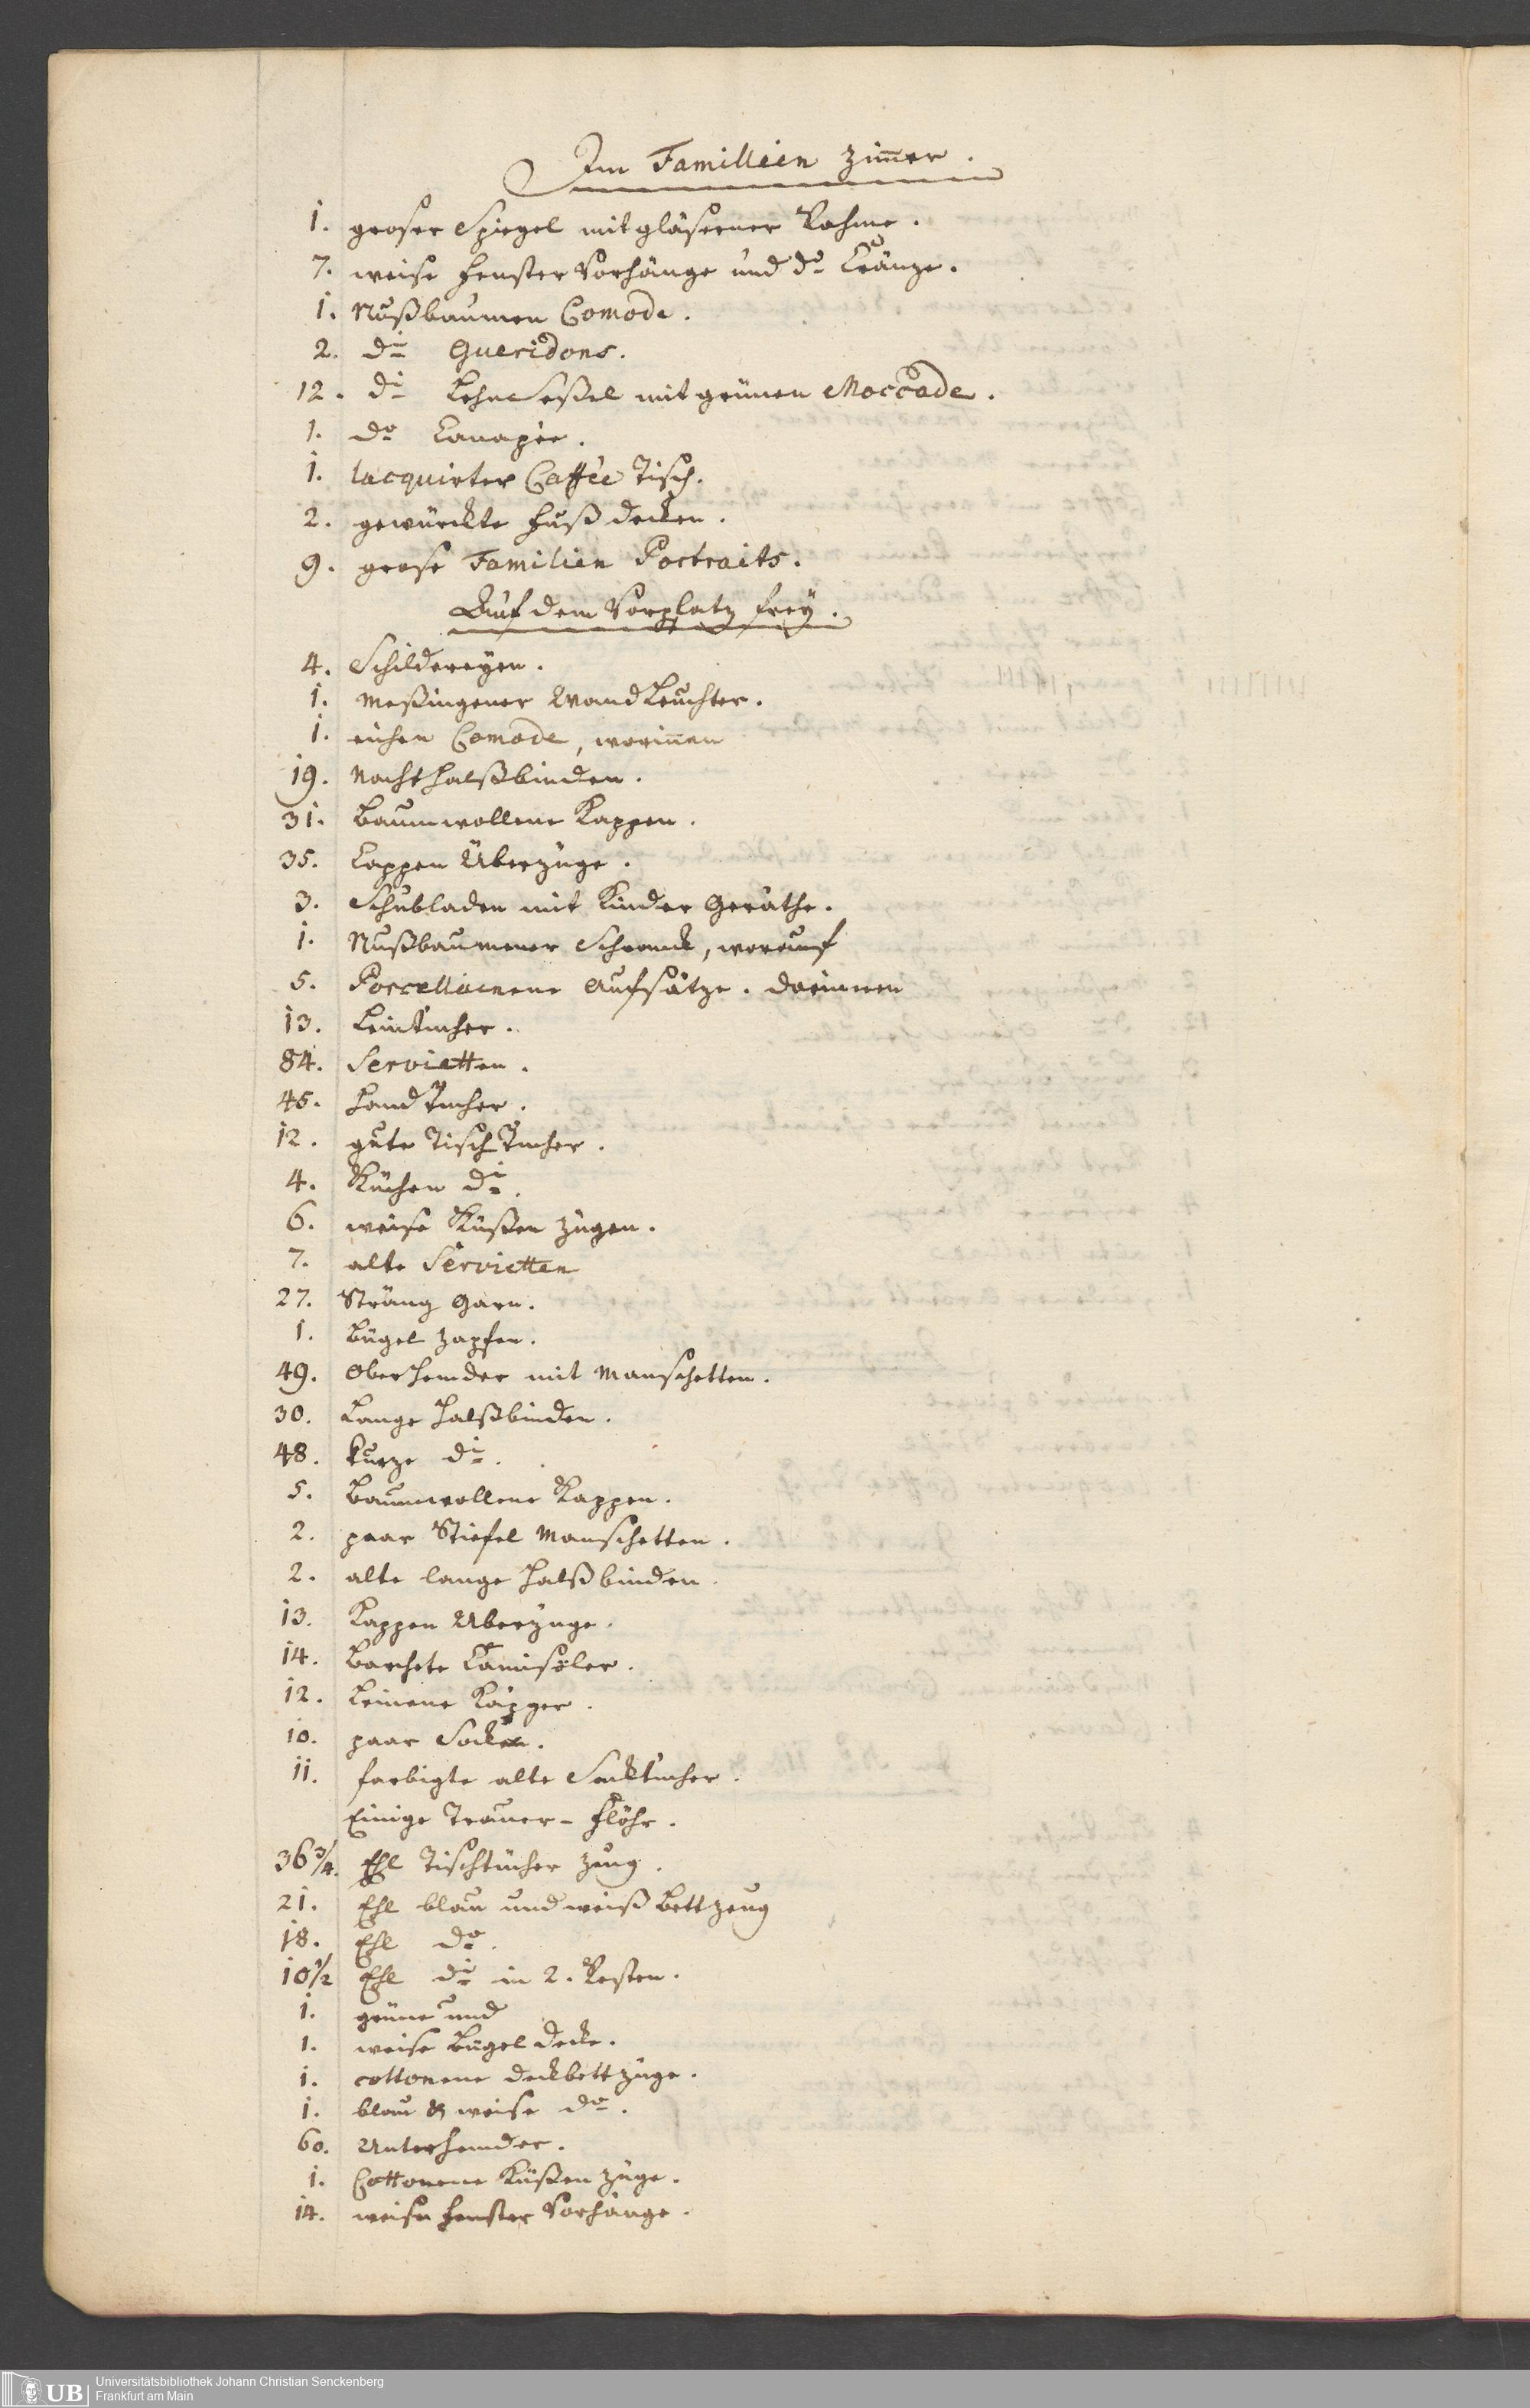 Im Famillien Zim̅er.
1. groser Spiegel mit gläserner Rahme.
7. weise Fenster Vorhänge und do Cränze.
1. Nußbaumen Comode.
2. di Gueridons.
12. di Lehn Seßel mit grünen Moccade.
1. do Canapèe.
1. lacquirter Caffèe Tisch.
2. gewürckte Fuß decken.
9. grose Familien Portraits.
Auf dem Vorplatz frey.
4. Schildereyen.
1. meßingener Wand Leuchter.
1. eichen Comode, worin̅en
19. Nacht Halßbinden.
31. Baumwollene Kappen.
35. Cappen Überzüge.
3. Schubladen mit Kinder Geräthe.
1. Nußbaumener Schranck, worauf
5. Porcellainene Aufsätze. darinnen
13. Leintücher.
84. Servietten.
45. Hand Tücher.
12. gute Tisch Tücher.
4. Küchen di.
6. weise Küßen Zügen.
7. alte Servietten
27. Sträng Garn.
1. Bügel Zapfen.
49. Oberhemder mit Manschetten.
30. Lange Halßbinden.
48. kurze di.
5. Baumwollene Kappen.
2. paar Stiefel Manschetten.
2. alte lange Halßbinden.
13. Kappen Uberzüge.
14. Barchete Camisöler.
12. Leinene Käpger.
10. paar Socken.
11. farbigte alte Sacktücher.
Einige Trauer-Flöhr.
36 3/4. Ehl Tischtücher Zeug.
21. Ehl blau und weiß Bettzeug
18. Ehl do.
10 1/2 Ehl di in 2. Resten.
1. grüne und
1. weise Bügel Decke.
1. cottonene deckbett Züge.
1. blau & weise do.
60. Unterhemder.
1. Cottonene Küßen Züge.
14. weise Fenster Vorhänge.
UB Universitätsbibliothek Johann Christian Senckenberg
Frankfurt am Main